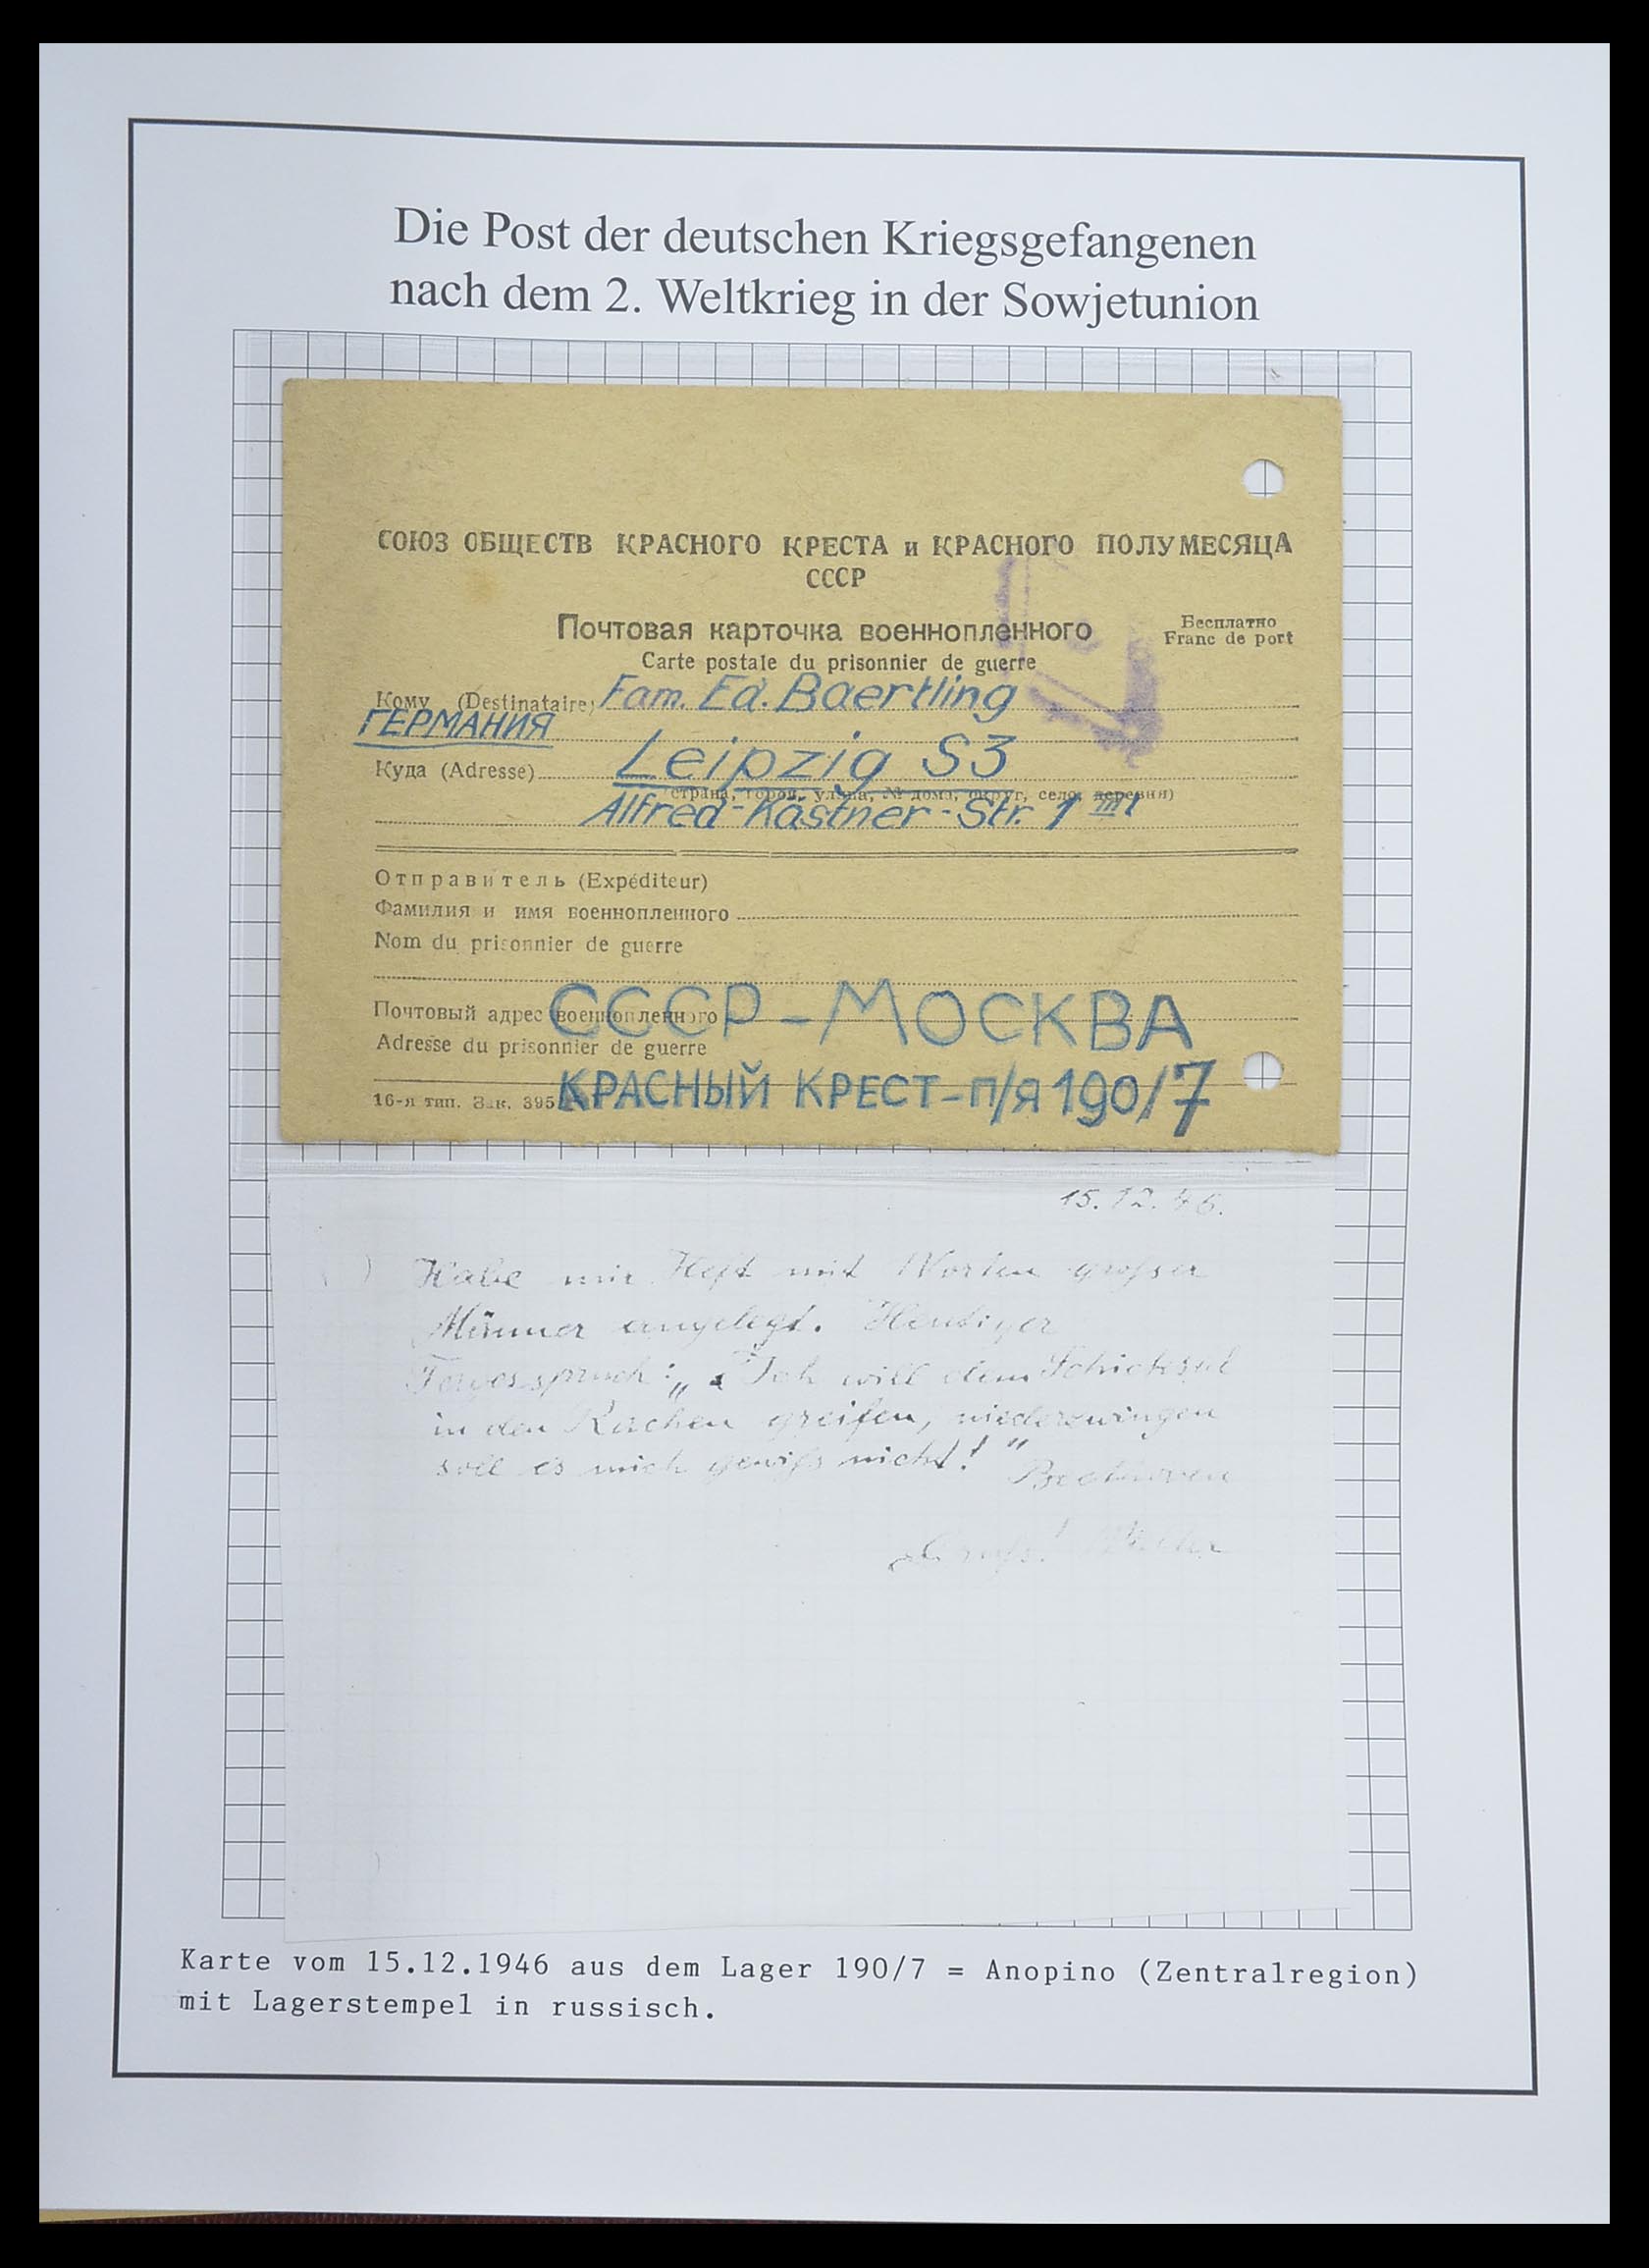 Die Post der deutschen Kriegsgefangenen
nach dem 2. Weltkrieg in der Sowjetunion
СОЮЗ ОБЩЕСТВ КРАСНОГО КРЕСТА и КРАСНОГО ПОЛУМЕСЯЦА
СССР
Почтовая карточка военнопленного
Бесплатно
Franc de port
Carte postale du prisonnier de guerre
Кому (Destinataire) Fam. Ed. Baertling
ГЕРМАНИЯ
Куда (Adresse) Leipzig S3
(страна, город, улица, № дома, округ, село, деревня)
Alfred-Kästner-Str. 1 III
Отправитель (Expéditeur)
Фамилия и имя военнопленного
Nom du prisonnier de guerre
Почтовый адрес военнопленного СССР - МОСКВА
Adresse du prisonnier de guerre
КРАСНЫЙ КРЕСТ - П/Я 190/7
16-я тип. Зак. 395
15.12.46.
Habe mir Heft mit Worten großer
Männer angelegt. Heutiger
Tagesspruch: „Ich will dem Schicksal
in den Rachen greifen, niederzwingen
soll es mich gewiß nicht!" Beethoven
Gruß!
Karte vom 15.12.1946 aus dem Lager 190/7 = Anopino (Zentralregion)
mit Lagerstempel in russisch.